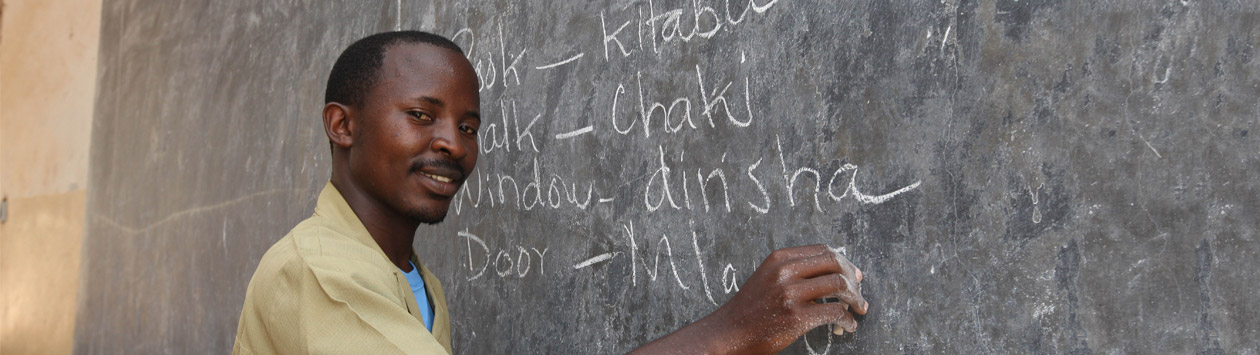 Book – kitabu
Chalk – Chaki
Window – dirisha
Door – Mla